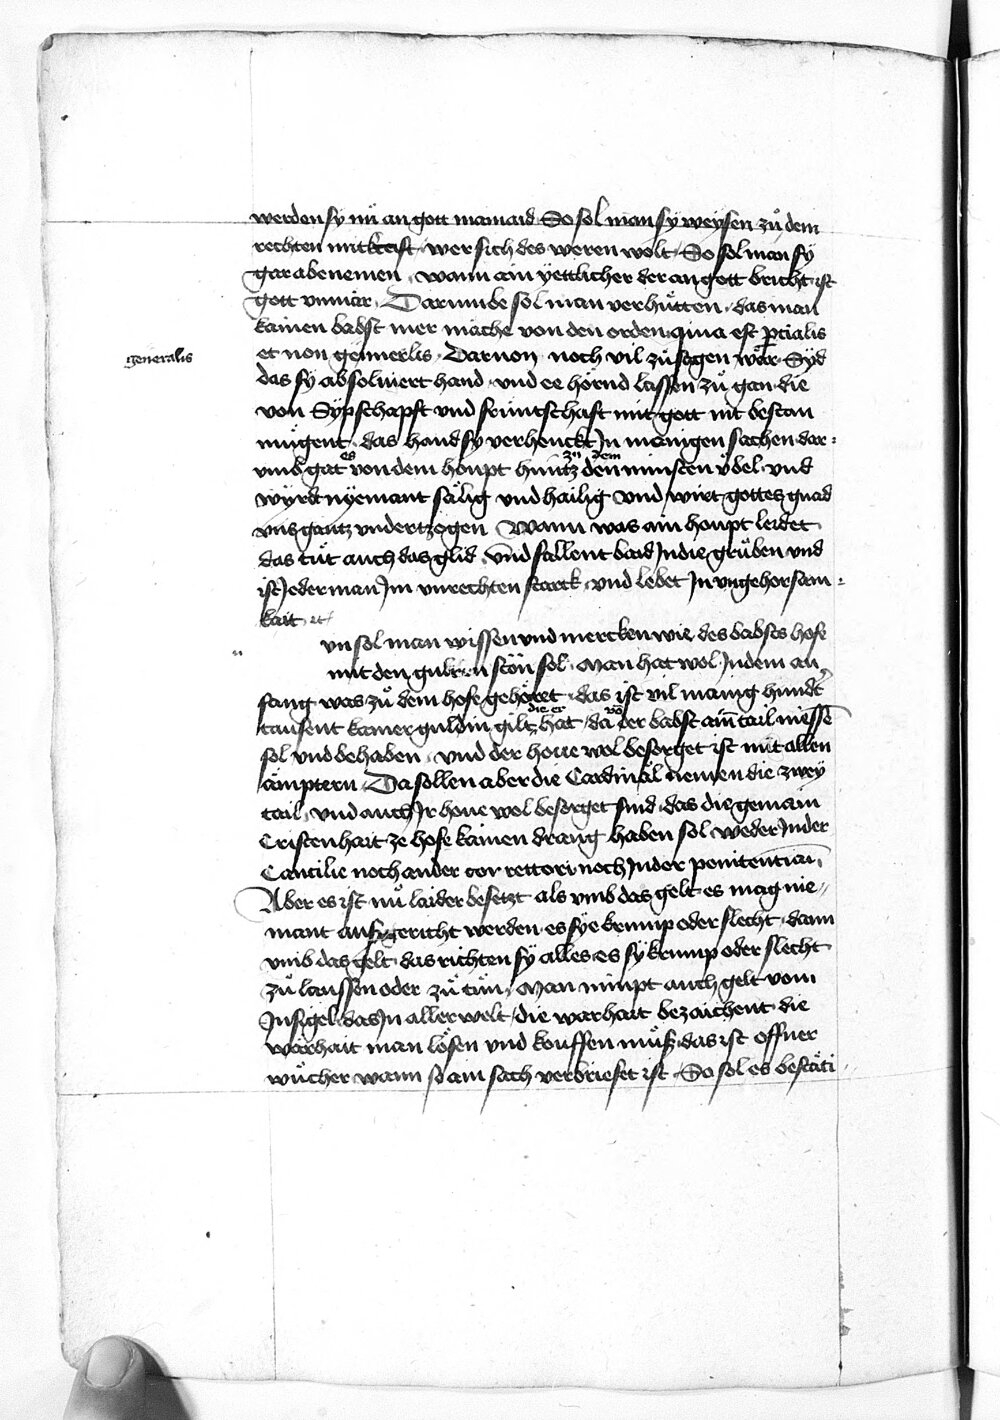 werden sy nů an gott mainaid So sol man sy weysen zů dem
rechten mit krafft · wer sich des weren wolt · So sol man sy
gar abenemen · wann ain yettlicher der an gott bricht ist
gott vnmär · Darumbe sol man verhůtten · das man
kainen babst mer mache von den orden · quia est pcialis
et non generlis · Dar von noch vil zů sagen wär · Syd
generalis
das sy absoluiert hand · vnd ee hörnd lassen zů gan · die
von Sypschafft vnd fruntschafft mit gott nit bestan
mügent · das hand sy verhenckt In mänigen sachen dar=
vmb gät es von dem houpt huntz zu dem den minsten ůbel · vnd
wyrdt nyemant sälig vnd hailig vnd wirt gottes gnad
vns gantz vndertzogen Wann was ain houpt leidet
das tůt auch das glid · vnd fallent baid In die grůben vnd
ist Jederman Im vnrechten starck · vnd lebet In vngehorsam=
kait · etc
vn sol man wissen vnd mercken wie des babstes hofe
mit den gulden stön sol · Man hat wol In dem an
fang was zů dem hofe gehöret · das ist vil manig hundert
tausent kamer guldin gilt die er hat · da von der babst ain tail niessen
sol vnd behaben · vnd der houe wol besorget ist mit allen
ämptern · Da sollen aber die Cardinäl nemen die zwey
tail · vnd auch Ir houe wol besorget sind · das die gemain
Cristenhait ze hofe kainen drang haben sol weder In der
Cantzlie noch an der cor rettori noch In der penitentiari
Aber es ist nů laider besetzt als vmb das gelt es mag nie=
mant auszgericht werden · es sye krump oder slecht · dann
vmb das gelt · das richten sy alles es sy krump oder slecht
zů laussen oder zů tůn · Man nimpt auch gelt vom
Insigel · das In aller welt die warhait bezaichent die
warhait man lösen vnd kouffen můsz · das ist offner
wůcher wann so ain sach verbriefet ist · So sol es bestäti